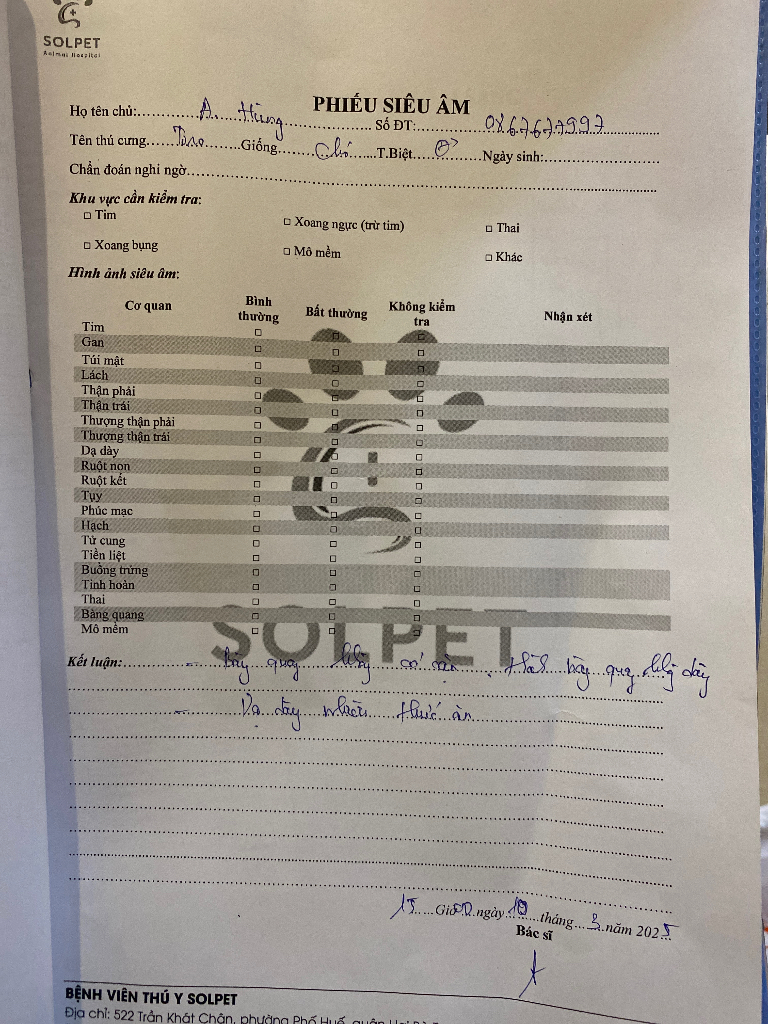 SOLPET
Animal Hospital
PHIẾU SIÊU ÂM
Họ tên chủ: A. Hùng Số ĐT: 0867677997
Tên thú cưng Giống Chó T.Biệt ♂ Ngày sinh:
Chẩn đoán nghi ngờ
Khu vực cần kiểm tra:
□ Tim □ Xoang ngực (trừ tim) □ Thai
□ Xoang bụng □ Mô mềm □ Khác
Hình ảnh siêu âm:
Cơ quan Bình thường Bất thường Không kiểm tra Nhận xét
Tim □ □ □
Gan □ □ □
Túi mật □ □ □
Lách □ □ □
Thận phải □ □ □
Thận trái □ □ □
Thượng thận phải □ □ □
Thượng thận trái □ □ □
Dạ dày □ □ □
Ruột non □ □ □
Ruột kết □ □ □
Tụy □ □ □
Phúc mạc □ □ □
Hạch □ □ □
Tử cung □ □ □
Tiền liệt □ □ □
Buồng trứng □ □ □
Tinh hoàn □ □ □
Thai □ □ □
Bàng quang □ □ □
Mô mềm □ □ □
SOLPET
Kết luận: - bàng quang không có, thành bàng quang không dày
- Dạ dày nhiều thức ăn
15 Giờ 00 ngày 10 tháng 3 năm 2025
Bác sĩ
BỆNH VIỆN THÚ Y SOLPET
Địa chỉ: 522 Trần Khát Chân, phường Phố Huế, quận